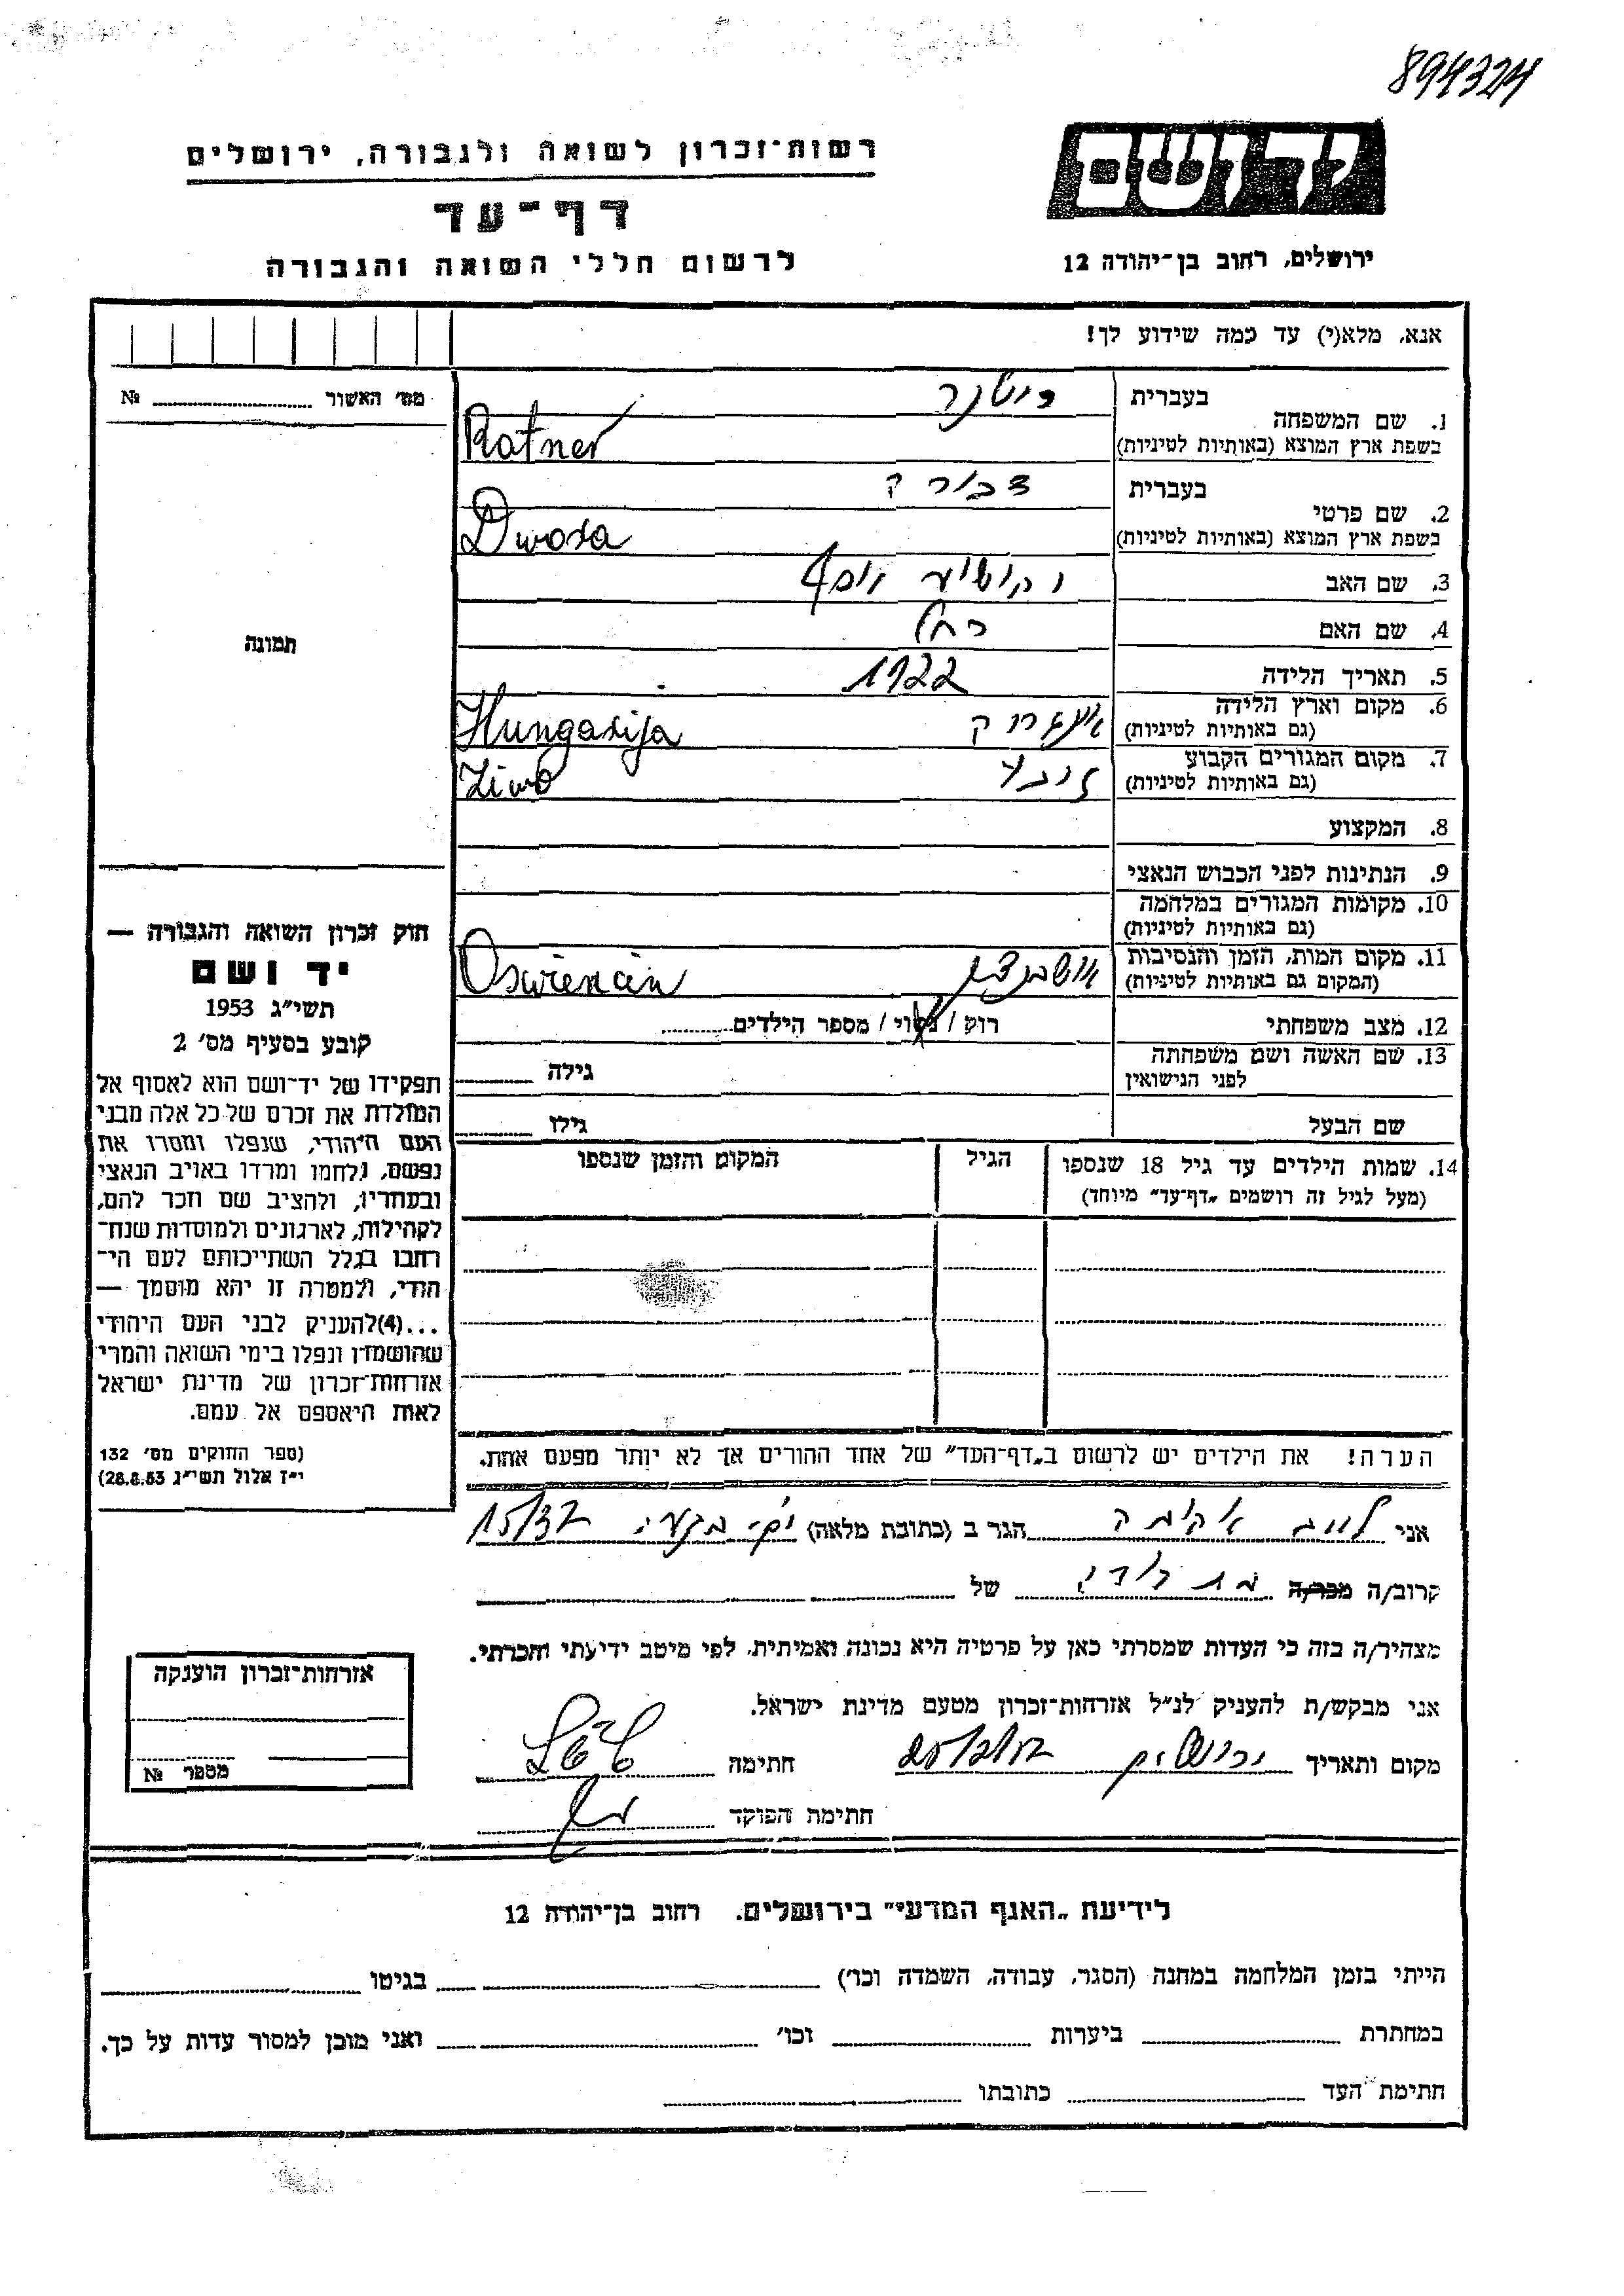 894324
רשות-זכרון לשואה ולגבורה, ירושלים
יד ושם
דף-עד
לרשום חללי השואה והגבורה
ירושלים, רחוב בן-יהודה 12
אנא, מלא(י) עד כמה שידוע לך!
מס' האשור № 
1. שם המשפחה בעברית
בשפת ארץ המוצא (באותיות לטיניות) Ratner
2. שם פרטי בעברית דבורה
בשפת ארץ המוצא (באותיות לטיניות) Dwora
3. שם האב יקותיאל יוסף
4. שם האם רחל
5. תאריך הלידה 1922
6. מקום וארץ הלידה
(גם באותיות לטיניות) Hungarija
7. מקום המגורים הקבוע
(גם באותיות לטיניות) Ziwo
8. המקצוע
9. הנתינות לפני הכבוש הנאצי
10. מקומות המגורים במלחמה
(גם באותיות לטיניות)
11. מקום המות, הזמן והנסיבות
(המקום גם באותיות לטיניות) Oswiencin
12. מצב משפחתי רוק / נשוי / מספר הילדים
13. שם האשה ושם משפחתה
לפני הנישואין גילה
שם הבעל גילו
14. שמות הילדים עד גיל 18 שנספו הגיל המקום והזמן שנספו
(מעל לגיל זה רושמים „דף-עד" מיוחד)
תמונה
חוק זכרון השואה והגבורה —
יד ושם
תשי"ג 1953
קובע בסעיף מס' 2
תפקידו של יד-ושם הוא לאסוף אל
המולדת את זכרם של כל אלה מבני
העם היהודי, שנפלו ומסרו את
נפשם, נלחמו ומרדו באויב הנאצי
ובעוזריו, ולהציב שם וזכר להם,
לקהילות, לארגונים ולמוסדות שנח-
רבו בגלל השתייכותם לעם הי-
הודי, ולמטרה זו יהא מוסמך —
...(4)להעניק לבני העם היהודי
שהושמדו ונפלו בימי השואה והמרי
אזרחות-זכרון של מדינת ישראל
לאות היאספם אל עמם.
(ספר החוקים מס' 132
י"ז אלול תשי"ג 28.8.53)
הערה! את הילדים יש לרשום ב„דף-העד" של אחד ההורים אך לא יותר מפעם אחת.
אני הגר ב (כתובת מלאה) 15/32
קרוב/ה מכר/ה בת דודה של
מצהיר/ה בזה כי העדות שמסרתי כאן על פרטיה היא נכונה ואמיתית, לפי מיטב ידיעתי והכרתי.
אני מבקש/ת להעניק לנ"ל אזרחות-זכרון מטעם מדינת ישראל.
מקום ותאריך ירושלים חתימה
חתימת הפוקד
אזרחות-זכרון הוענקה
מספר №
לידיעת „האגף המדעי" בירושלים. רחוב בן-יהודה 12
הייתי בזמן המלחמה במחנה (הסגר, עבודה, השמדה וכו') בגיטו
במחתרת ביערות וכו' ואני מוכן למסור עדות על כך.
חתימת העד כתובתו